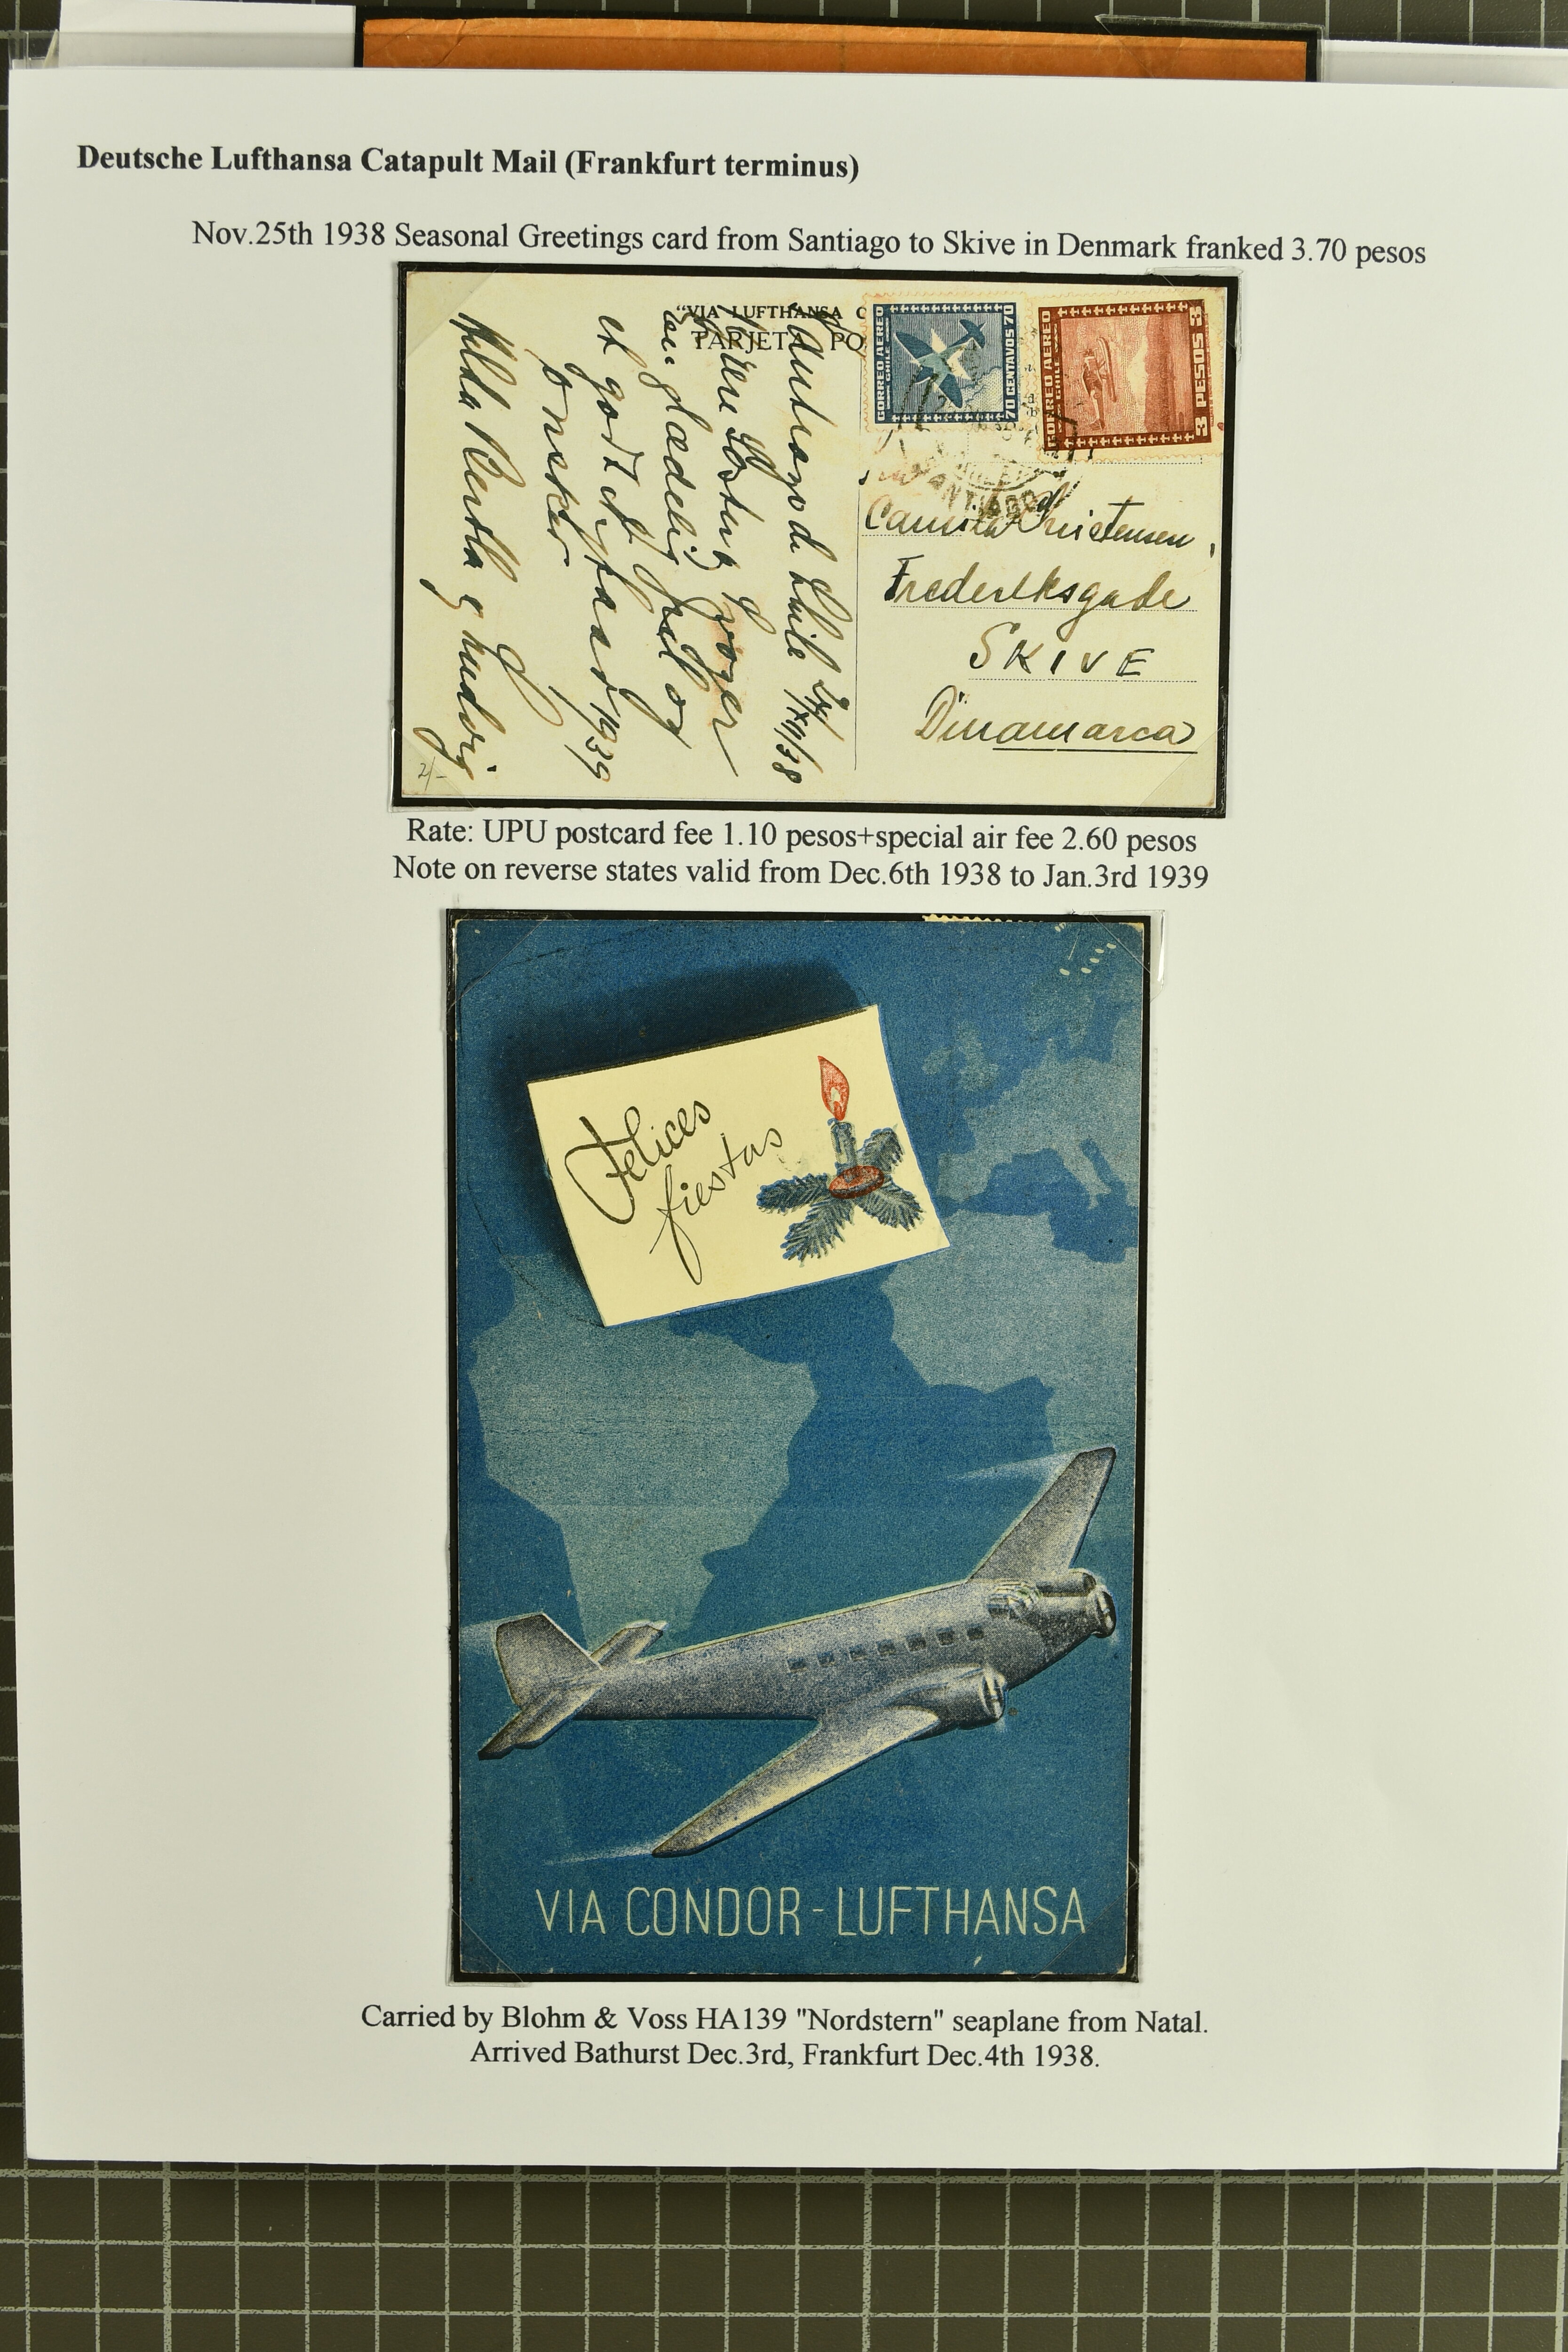 Deutsche Lufthansa Catapult Mail (Frankfurt terminus)
Nov.25th 1938 Seasonal Greetings card from Santiago to Skive in Denmark franked 3.70 pesos
"VIA LUFTHANSA C
TARJETA PO
CORREO AEREO
CHILE
70 CENTAVOS 70
CORREO AEREO
CHILE
3 PESOS 3
SANTIAGO
Camila Kristensen,
Frederiksgade
SKIVE
Dinamarca
Santiago de Chile
en glædelig Jul og
et godt Nytaar 1939
ønsker
Hilda Bertha og Ludvig
2/-
Rate: UPU postcard fee 1.10 pesos+special air fee 2.60 pesos
Note on reverse states valid from Dec.6th 1938 to Jan.3rd 1939
Felices
fiestas
VIA CONDOR-LUFTHANSA
Carried by Blohm & Voss HA139 "Nordstern" seaplane from Natal.
Arrived Bathurst Dec.3rd, Frankfurt Dec.4th 1938.